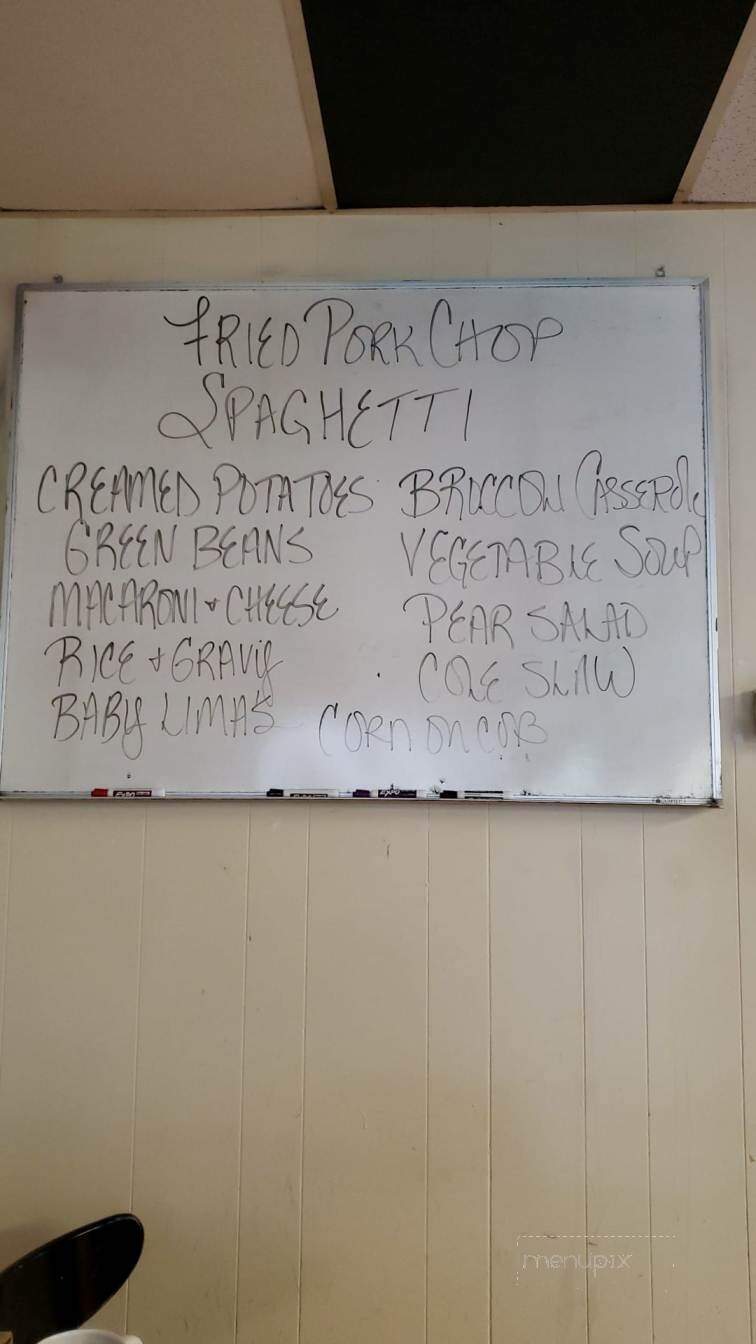 FRIED PORK CHOP
SPAGHETTI
CREAMED POTATOES
GREEN BEANS
MACARONI + CHEESE
RICE + GRAVY
BABY LIMAS
BROCCOLI CASSEROLE
VEGETABLE SOUP
PEAR SALAD
COLE SLAW
CORN ON COB
EXPO
EXPO
menupix